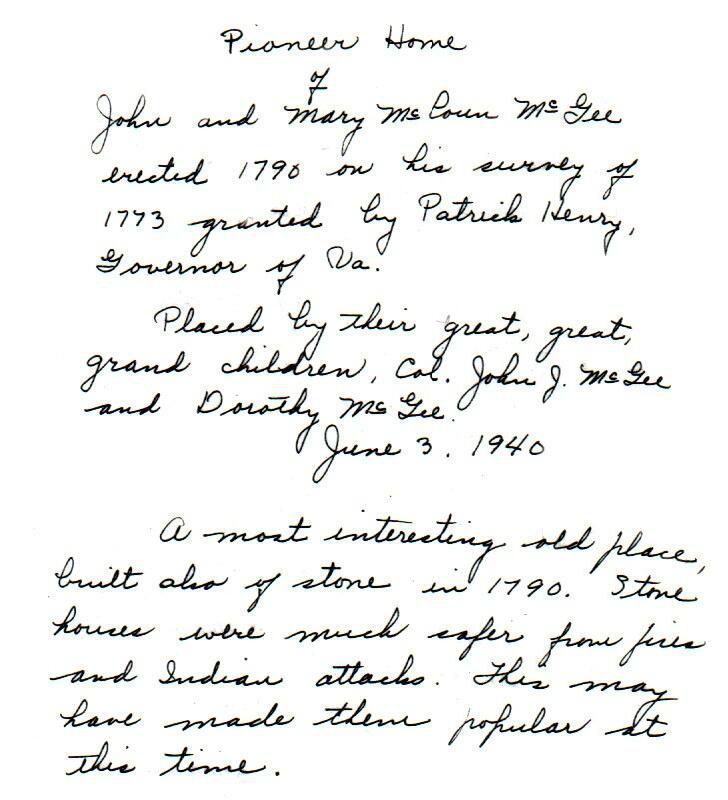 Pioneer Home
of
John and Mary McCoun McGee
erected 1790 on his survey of
1773 granted by Patrick Henry,
Governor of Va.
Placed by their great, great,
grand children, Col. John J. McGee
and Dorothy McGee.
June 3, 1940
A most interesting old place,
built also of stone in 1790. Stone
houses were much safer from fires
and Indian attacks. This may
have made them popular at
this time.